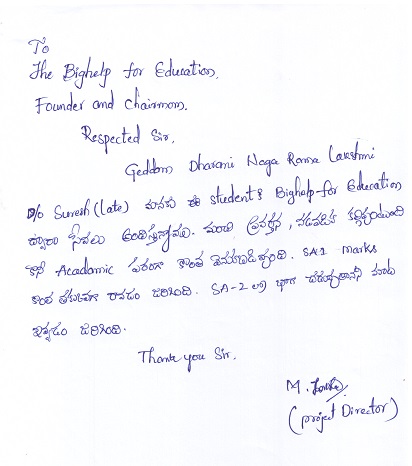 To
The Bighelp for Education,
Founder and Chairman.
Respected Sir,
Geddam Dharani Naga Rama Lakshmi
D/o Suresh (late) మనము ఈ students Bighelp-for Education
ద్వారా సేవలు అందిస్తున్నాము. మంచి ప్రవర్తన, నడవడిక కల్గివుంటుంది
కానీ Academic పరంగా కొంత వెనుకబడివుంది. SA1 Marks
కొంత తక్కువగా రావడం జరిగింది. SA-2 లో బాగా చదువుతానని మాట
ఇవ్వడం జరిగింది.
Thank you Sir.
M.
(project Director)